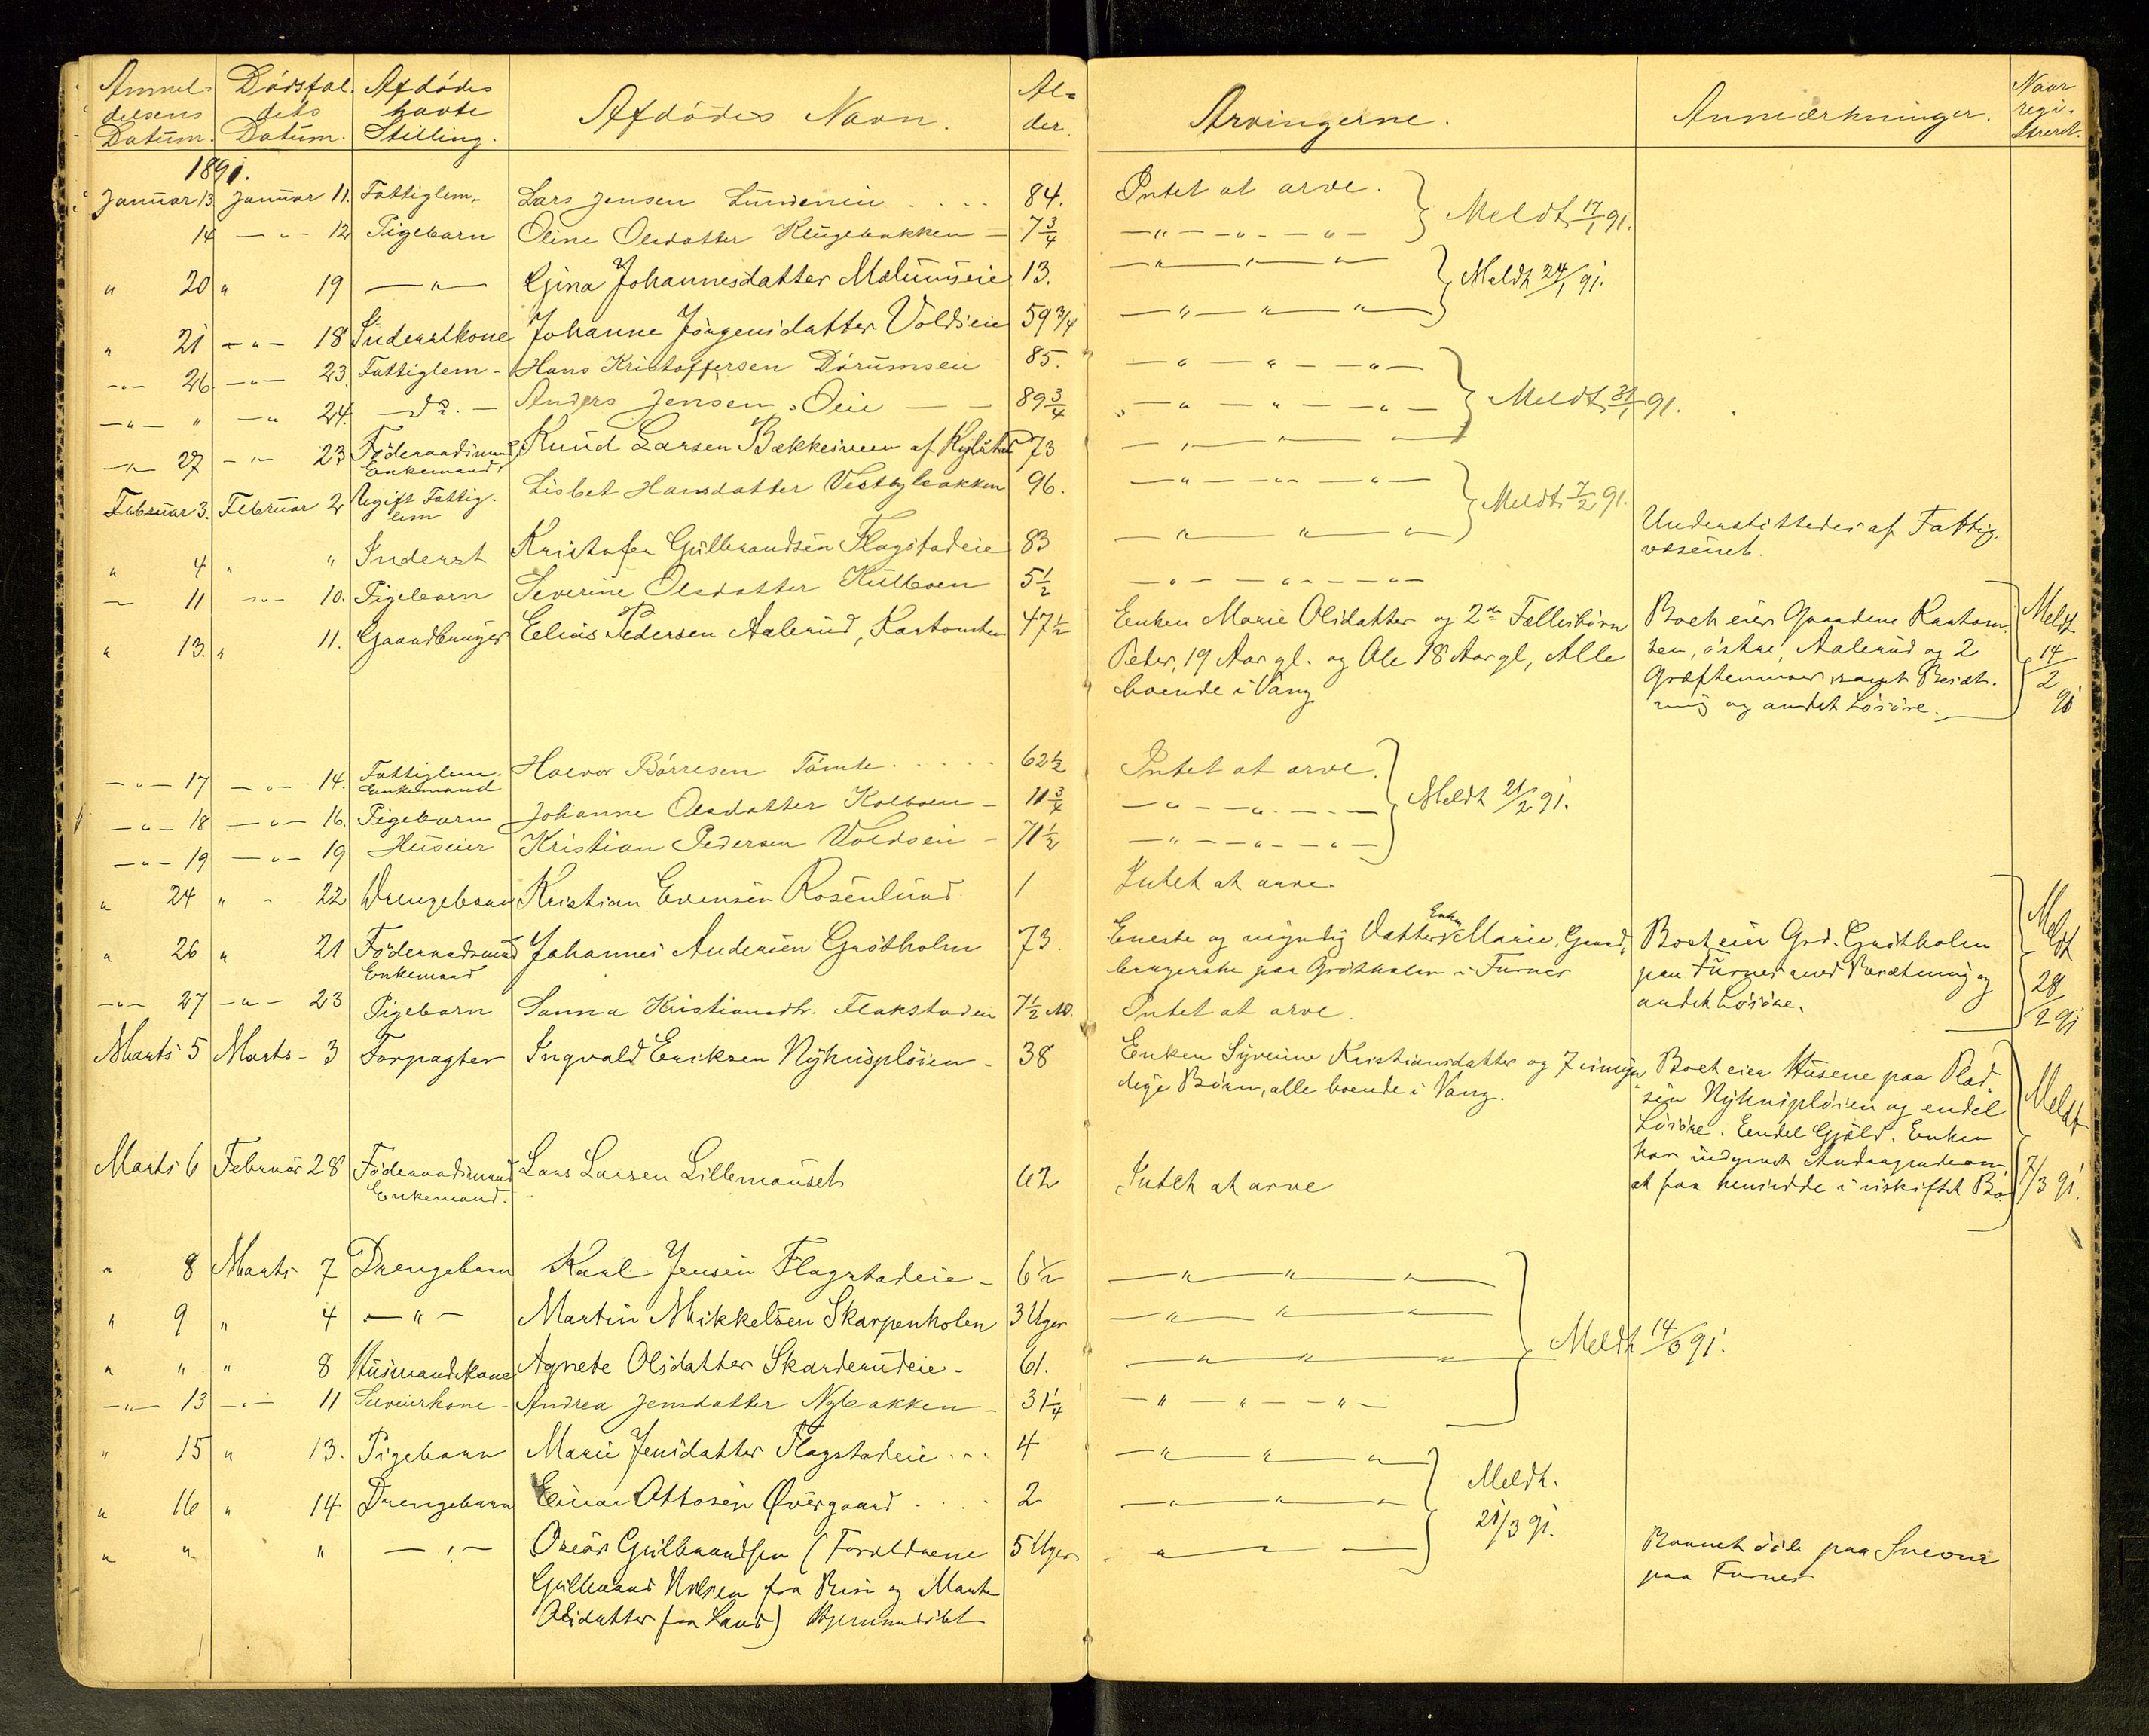 Anmel- Dödsfal- Afdödes Al- Naar
delsens dets havte Afdödes Navn. der. Arvingerne. Anmærkninger. regi-
Datum. Datum. Stilling. streret.
1891.
Januar 13 Januar 11. Fattiglem. Lars Jensen Lundeneie . . . . 84. Intet at arve. } Meldt 17/1 91.
14 — " — 12 Pigebarn Oline Olsdatter Klugebakken — 7 3/4 — " — " — " —
" 20 " 19 — " — Gina Johannesdatter Malumseie 13. — " — " — " — } Meldt 24/1 91.
" 21 — " — 18 Inderstkone Johanne Jörgensdatter Voldseie 59 3/4 — " — " — " —
— " — 26 — " — 23. Fattiglem - Hans Kristoffersen Dörumseie 85. — " — " — " — } Meldt 31/1 91.
— " — " — " 24. — do. — Anders Jensen Oeie — — 89 3/4 — " — " — " —
— " — 27 — " — 23 Föderaadsmand, Knud Larsen Bækkesveen af Kylstad 73 — " — " — " —
Enkemand
Februar 3. Februar 2 Ugift Fattig- Lisbet Hansdatter Vestbybakken 96. — " — " — " — } Meldt 7/2 91.
lem
" 4 " " Inderst Kristofer Gulbrandsen Flagstadeie 83 — " — " — " — Understöttedes af Fattig-
væsenet.
— 11 — " — 10. Pigebarn Severine Olsdatter Kulboen 5 1/2 — " — " — " —
" 13. " 11. Gaardbruger Elias Pedersen Aalerud, Kartomten 47 1/2 Enken Marie Olsdatter og 2de Fællesbörn Boet eier Gaardene Kartom- } Meldt
Peder, 19 Aar gl. og Ole 18 Aar gl, Alle ten, östre, Aalerud og 2
boende i Vang Græftemner, samt Besæt- 14/2 91
ning og andet Lösöre.
— " — 17 — " — 14. Fattiglem. Halvor Börresen Tömte . . . . . 62 1/2 Intet at arve. } Meldt 21/2 91.
Enkemand
— " — 18 — " — 16. Pigebarn Johanne Olsdatter Kolboen — 11 3/4 — " — " — " —
— " — 19 — " — 19 Huseier Kristian Pedersen Voldseie — 71 1/2 — " — " — " —
" 24 " - 22 Drengebarn Kristian Evensen Rosenlund 1 Intet at arve.
" 26 " 21 Föderaadsmand Johannes Andersen Grötholm 73. Eneste og myndig Datter Enke Marie, Gaard- Boet eier Grd. Grötholm } Meldt
Enkemand brugerske paa Grötholm i Furnes paa Furnes med Besætning og 28/2 91
— " — 27 — " — 23 Pigebarn Sanna Kristiansdtr. Flakstadeie 7 1/2 M. Intet at arve. andet Lösöre.
Marts 5 Marts - 3 Forpagter Ingvald Eriksen Nyhusplösen - 38 Enken Syverine Kristiansdatter og 7 umyn- Boet eier Husene paa Plad- } Meldt
dige Börn, alle boende i Vang. sen Nyhusplösen og endel
Lösöre. Endel Gjæld. Enken
har udgivet Andragendeom,
Marts 6 Februar 28 Föderaadsmand Lars Larsen Lillemauset 62 Intet at arve at faa hensidde i uskiftet Bo 7/3 91.
Enkemand.
" 8 Marts 7 Drengebarn Karl Jensen Flagstadeie — 6 1/2 — " — " — " — } Meldt 14/3 91.
" 9 " 4 — " — Martin Mikkelsen Skarpenholen 3 Uger — " — " — " —
" " " 8 Husmandskone Agnete Olsdatter Skarderudeie - 61. — " — " — " —
— " — 13 — " — 11 Andrea Jensdatter Nybakken — 31 1/4 — " — " — " —
" 15 " 13. Pigebarn Marie Jensdatter Flagstadeie . . . 4 — " — " — " — } Meldt.
" 16 " 14 Drengebarn Einar Ottosen Øvergaard . . . . 2 — " — " — " — 21/3 91.
" " " — " — Oscar Gulbrandsen (Forældrene 5 Uger — " — — Barnet döde paa
Gulbrand Nilsen fra og Marte paa Furnes
Olsdatter fra Land) Hjemmedöbt